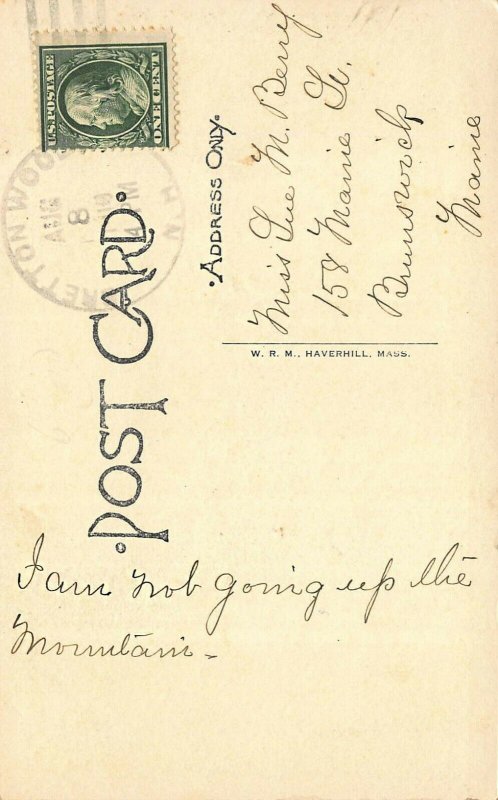 U.S. POSTAGE
ONE CENT
AUG
8
N.H.
POST CARD.
ADDRESS ONLY.
Miss Sue M. Berry
158 Maine St.
Brunswick
Maine
W. R. M., HAVERHILL, MASS.
I am not going up the
Mountain -